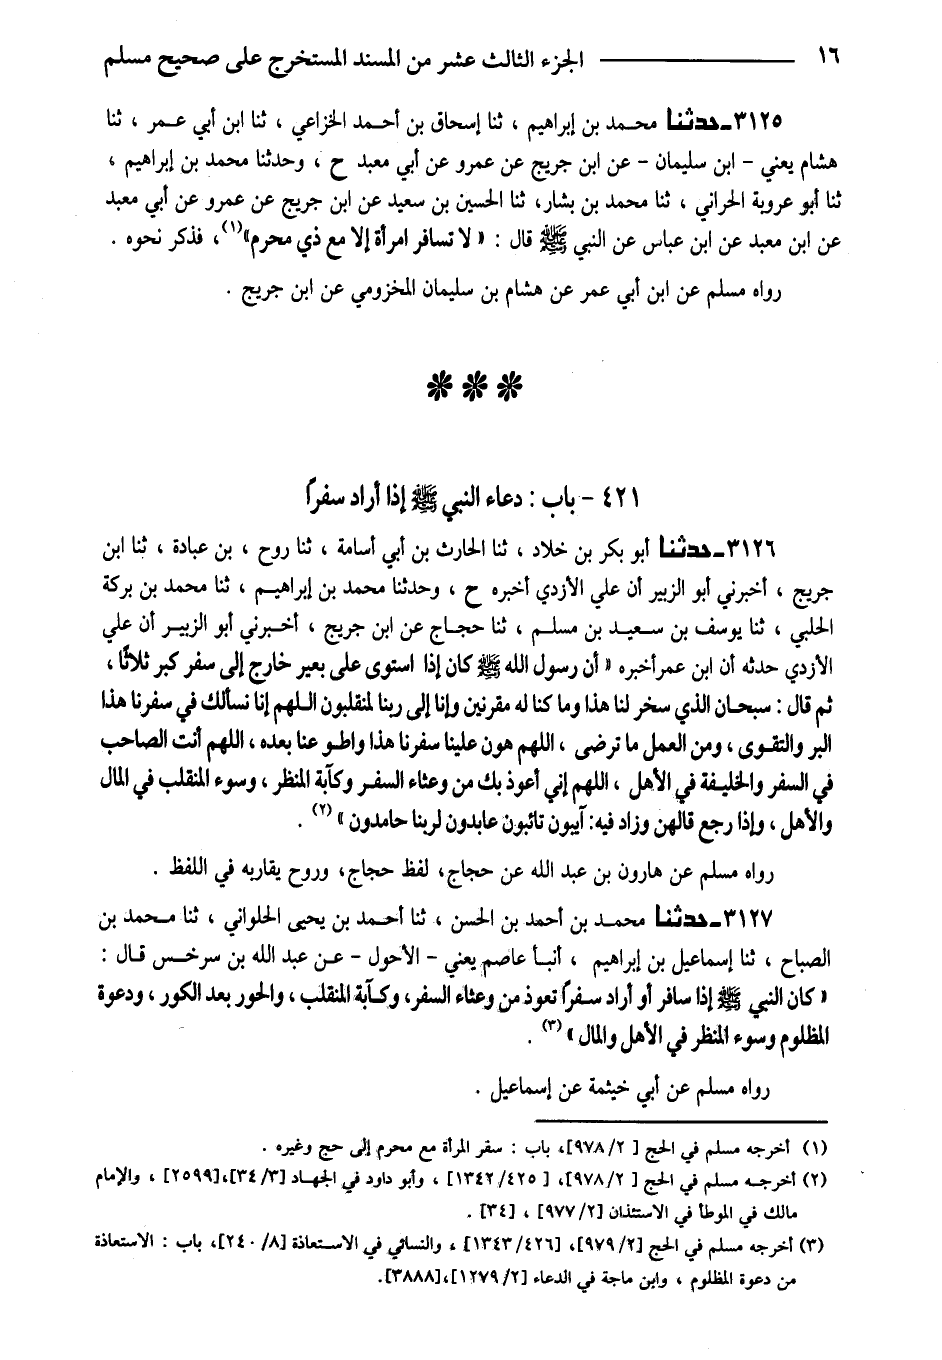 ١٦ ـــــــــــ الجزء الثالث عشر من المسند المستخرج على صحيح مسلم
٣١٢٥ـ حدثنا محمد بن إبراهيم ، ثنا إسحاق بن أحمد الخزاعي ، ثنا ابن أبي عمر ، ثنا
هشام يعني - ابن سليمان - عن ابن جريج عن عمرو عن أبي معبد ح ، وحدثنا محمد بن إبراهيم ،
ثنا أبو عروبة الحراني ، ثنا محمد بن بشار، ثنا الحسين بن سعيد عن ابن جريج عن عمرو عن أبي معبد
عن ابن معبد عن ابن عباس عن النبي ﷺ قال : « لا تسافر امرأة إلا مع ذي محرم»(١)، فذكر نحوه .
رواه مسلم عن ابن أبي عمر عن هشام بن سليمان المخزومي عن ابن جريج .
❋❋❋
٤٢١ - باب : دعاء النبي ﷺ إذا أراد سفرًا
٣١٢٦ـ حدثنا أبو بكر بن خلاد ، ثنا الحارث بن أبي أسامة ، ثنا روح ، بن عبادة ، ثنا ابن
جريج ، أخبرني أبو الزبير أن علي الأزدي أخبره ح ، وحدثنا محمد بن إبراهيم ، ثنا محمد بن بركة
الحلبي ، ثنا يوسف بن سعيد بن مسلم ، ثنا حجاج عن ابن جريج ، أخبرني أبو الزبير أن علي
الأزدي حدثه أن ابن عمرأخبره « أن رسول الله ﷺ كان إذا استوى على بعير خارج إلى سفر كبر ثلاثًا ،
ثم قال : سبحان الذي سخر لنا هذا وما كنا له مقرنين وإنا إلى ربنا لمنقلبون اللهم إنا نسألك في سفرنا هذا
البر والتقوى ، ومن العمل ما ترضى ، اللهم هون علينا سفرنا هذا واطو عنا بعده ، اللهم أنت الصاحب
في السفر والخليفة في الأهل ، اللهم إني أعوذ بك من وعثاء السفر وكآبة المنظر ، وسوء المنقلب في المال
والأهل ، وإذا رجع قالهن وزاد فيه: آيبون تائبون عابدون لربنا حامدون »(٢) .
رواه مسلم عن هارون بن عبد الله عن حجاج، لفظ حجاج، وروح يقاربه في اللفظ .
٣١٢٧ـ حدثنا محمد بن أحمد بن الحسن ، ثنا أحمد بن يحيى الحلواني ، ثنا محمد بن
الصباح ، ثنا إسماعيل بن إبراهيم ، أنبأ عاصم يعني - الأحول - عن عبد الله بن سرخس قال :
« كان النبي ﷺ إذا سافر أو أراد سفرًا تعوذ من وعثاء السفر، وكآبة المنقلب ، والحور بعد الكور ، ودعوة
المظلوم وسوء المنظر في الأهل والمال »(٣) .
رواه مسلم عن أبي خيثمة عن إسماعيل .
(١) أخرجه مسلم في الحج [ ٢/ ٩٧٨]، باب : سقر المرأة مع محرم إلى حج وغيره .
(٢) أخرجه مسلم في الحج [ ٢/ ٩٧٨]، [ ٤٢٥/ ١٣٤٢] ، وأبو داود في الجهاد [٣/ ٣٤]،[٢٥٩٩] ، والإمام
مالك في الموطأ في الاستئذان [٢/ ٩٧٧] ، [٣٤] .
(٣) أخرجه مسلم في الحج [٢/ ٩٧٩]، [٤٢٦/ ١٣٤٣] ، والنسائي في الاستعاذة [٨/ ٢٤٠]، باب : الاستعاذة
من دعوة المظلوم ، وابن ماجة في الدعاء [٢/ ١٢٧٩]،[٣٨٨٨].